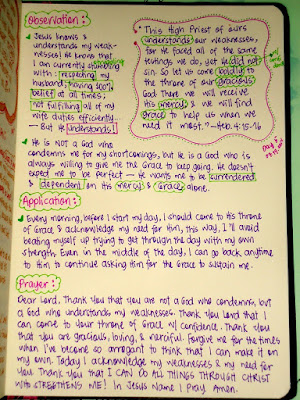 Observation:
• Jesus knows &
understands my weak-
nesses! He knows that
I am currently struggling
with: respecting my
husband, having 100%
belief at all times,
not fulfilling all of my
wife duties efficiently.
— But He understands!
This High Priest of ours
understands our weaknesses,
for He faced all of the same
testings we do, yet he did not
sin. So let us come boldly to
the throne of our gracious
God. There we will receive
His mercy, & we will find
grace to help us when we
need it most. - Heb. 4:15-16
• He is NOT a God who
condemns me for my shortcomings, but He is a God who is
always willing to give me the Grace to keep going. He doesn't
expect me to be perfect — He wants me to be surrendered
& dependent on His mercy & Grace alone.
Application:
• Every morning, before I start my day, I should come to His Throne
of Grace & acknowledge my need for Him, this way, I'll avoid
beating myself up trying to get through the day with my own
strength. Even in the middle of the day, I can go back anytime
to Him to continue asking Him for the Grace to sustain me.
Prayer:
Dear Lord, Thank You that you are not a God who condemns, but
a God who understands my weaknesses. Thank you Lord that I
can come to your throne of Grace w/ confidence. Thank you
that you are gracious, loving, & merciful. Forgive me for the times
when I've become so arrogant to think that I can make it on
my own. Today I acknowledge my weaknesses & my need for
you. Thank you that I CAN DO ALL THINGS THROUGH CHRIST
WHO STRENGTHENS ME! In Jesus Name I Pray, Amen.